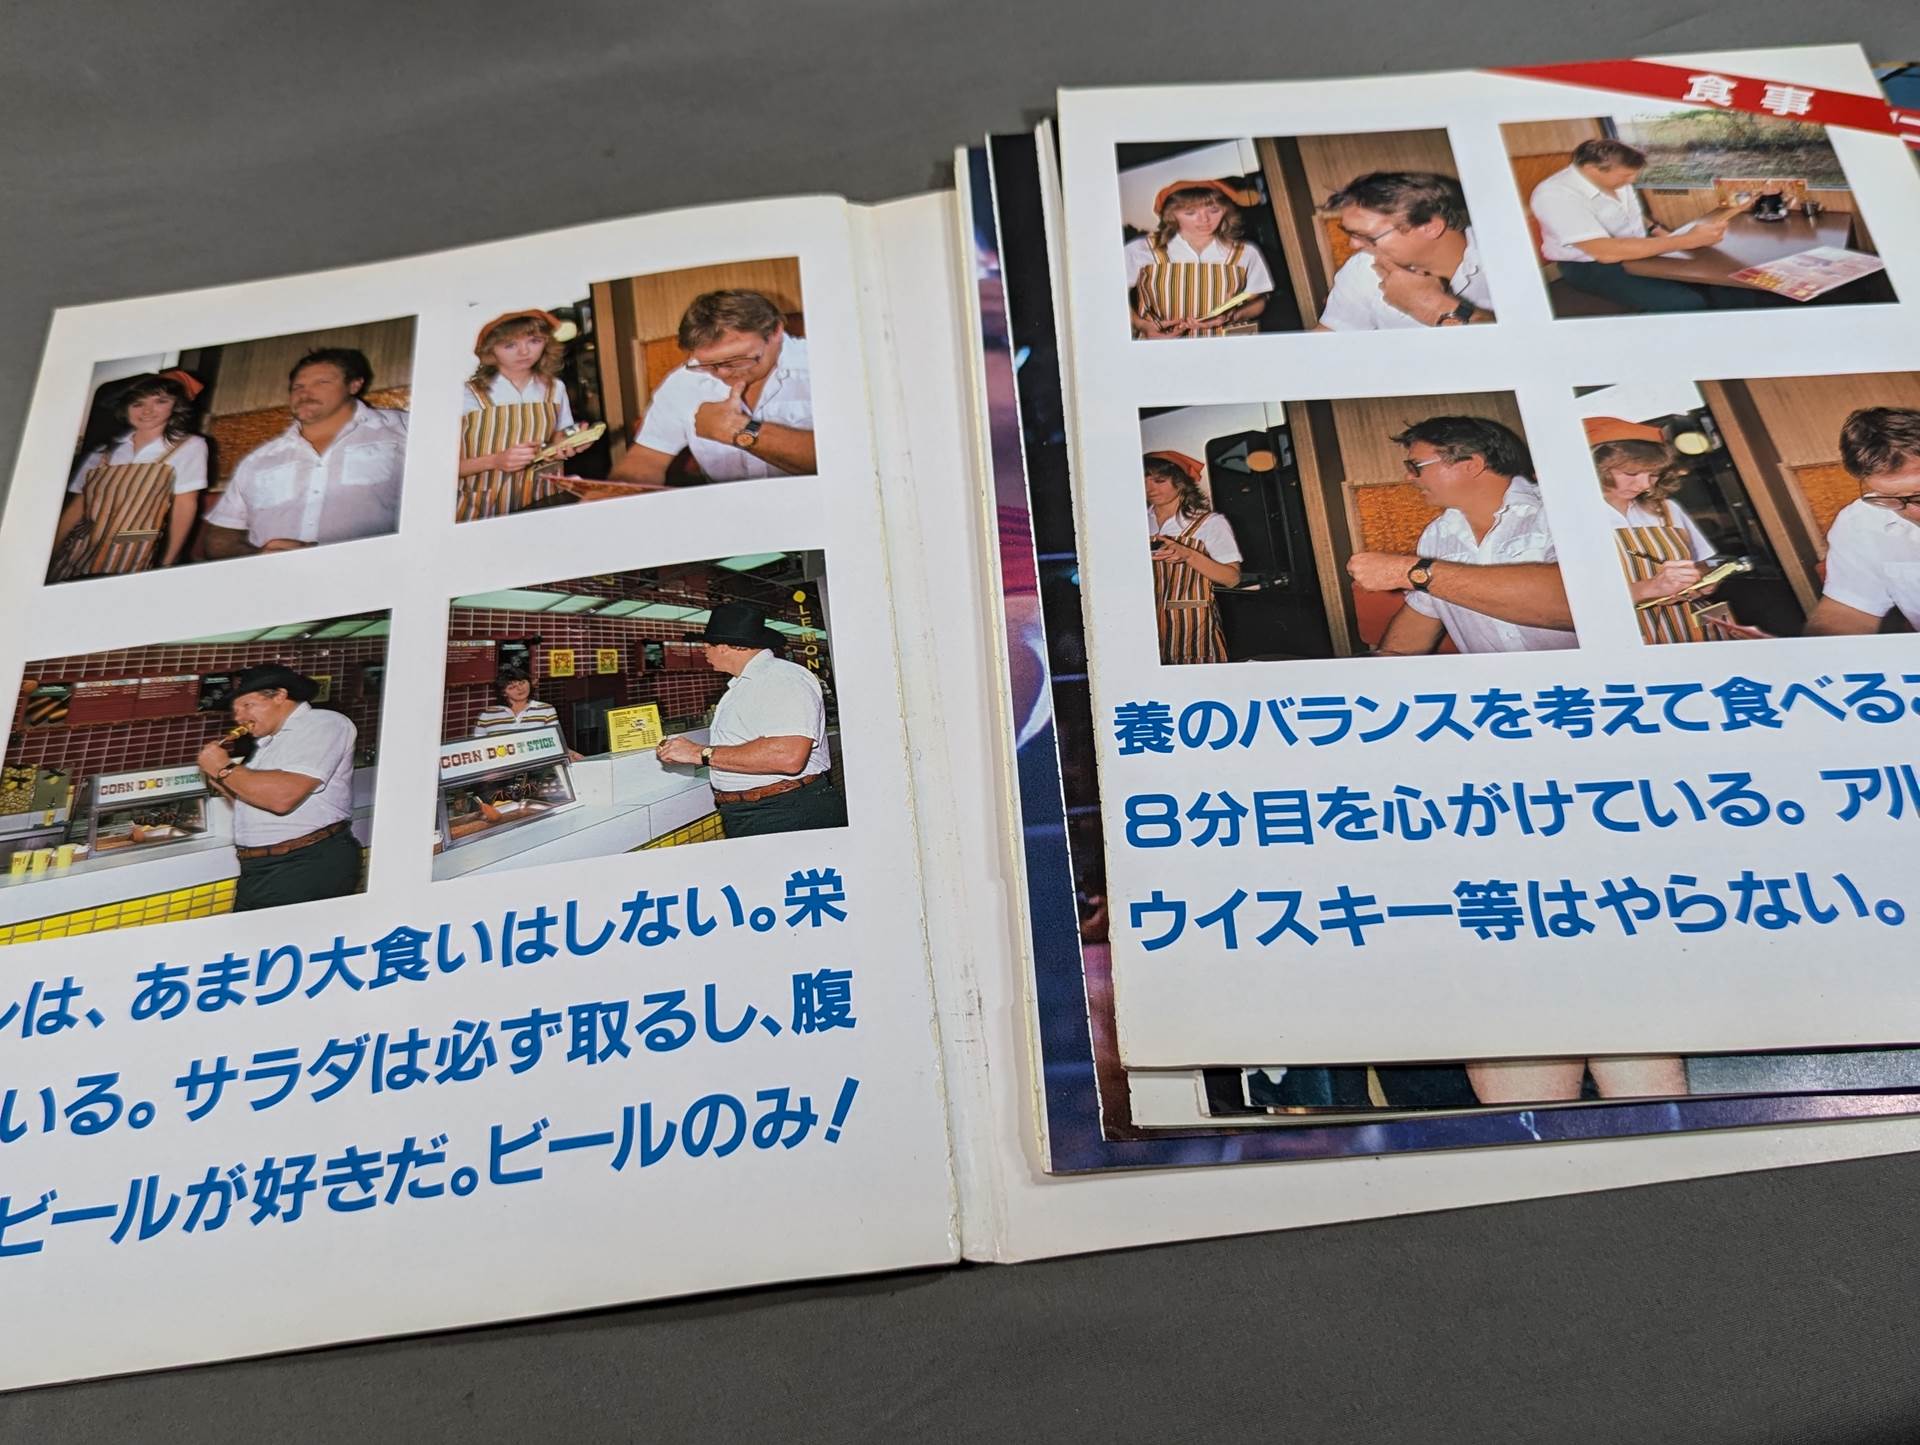 食事
CORN DOG ON A STICK
CORN DOG ON A STICK
LEMON
ンは、あまり大食いはしない。栄
いる。サラダは必ず取るし、腹
ビールが好きだ。ビールのみ!
養のバランスを考えて食べるこ
8分目を心がけている。アル
ウイスキー等はやらない。